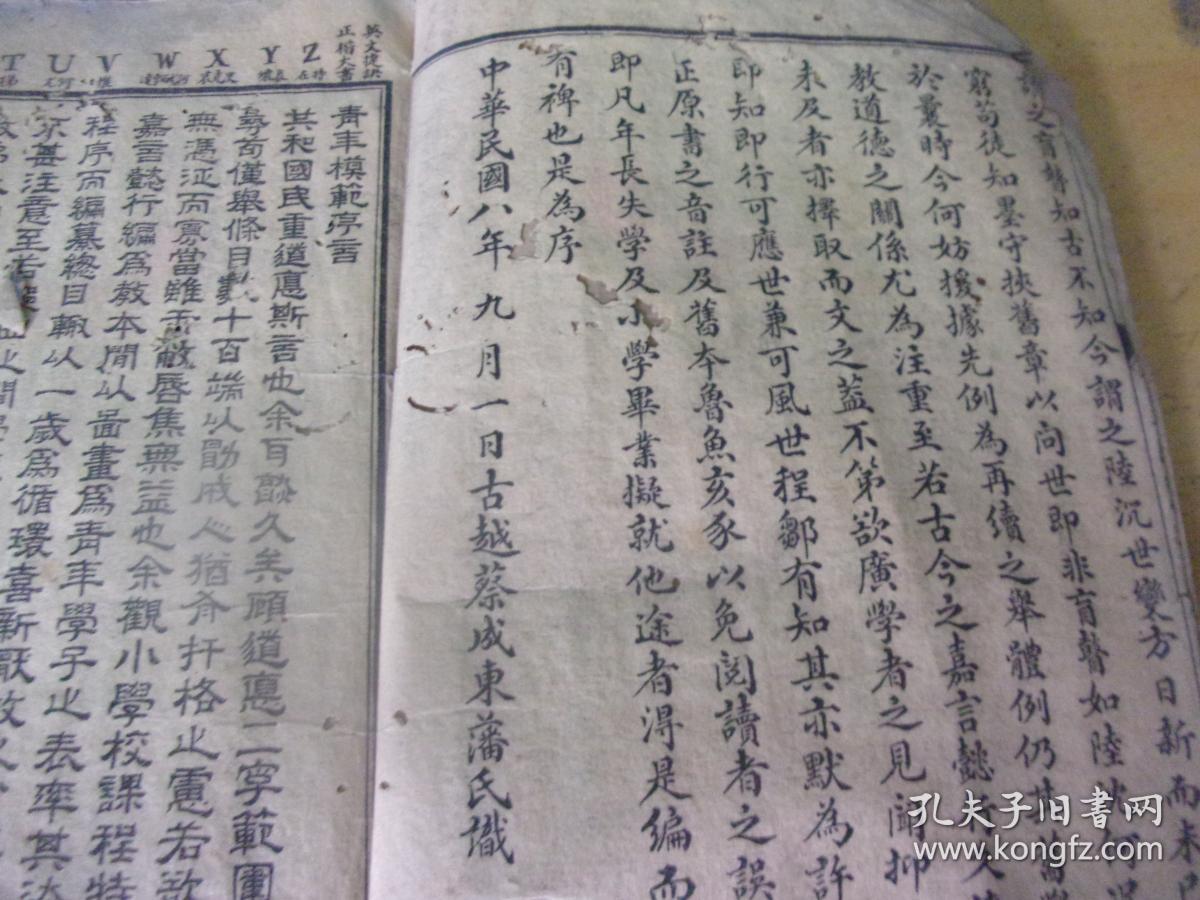 謂之盲瞽知古不知今謂之陸沉世變方日新而未
窮苟徒知墨守挾舊章以問世即非盲瞽如陸沉何
於曩時今何妨援據先例為再續之舉體例仍
教道德之關係尤為注重至若古今之嘉言懿
未及者亦擇取而文之蓋不第欲廣學者之見聞抑
即知即行可應世兼可風世程鄒有知其亦默為許
正原書之音註及舊本魯魚亥豕以免閱讀者之誤
即凡年長失學及小學畢業擬就他途者得是編而
有裨也是為序
中華民國八年九月一日古越蔡成東藩氏識
英文捷訣
正楷大書
T U V W X Y Z
青年模範序言
共和國民重道悳斯言也余耳熟久矣顧道悳二字範圍
尋苟僅舉條目數十百端以勖成心猶有扞格之慮若欲
無憑泟而寡當雖舌敝唇焦無益也余觀小學校課程特
嘉言懿行編為教本間以圖畫為青年學子之表率其法
程序而編纂總目輒以一歲為循環喜新厭故
京甚注意至若
孔夫子旧书网
www.kongfz.com